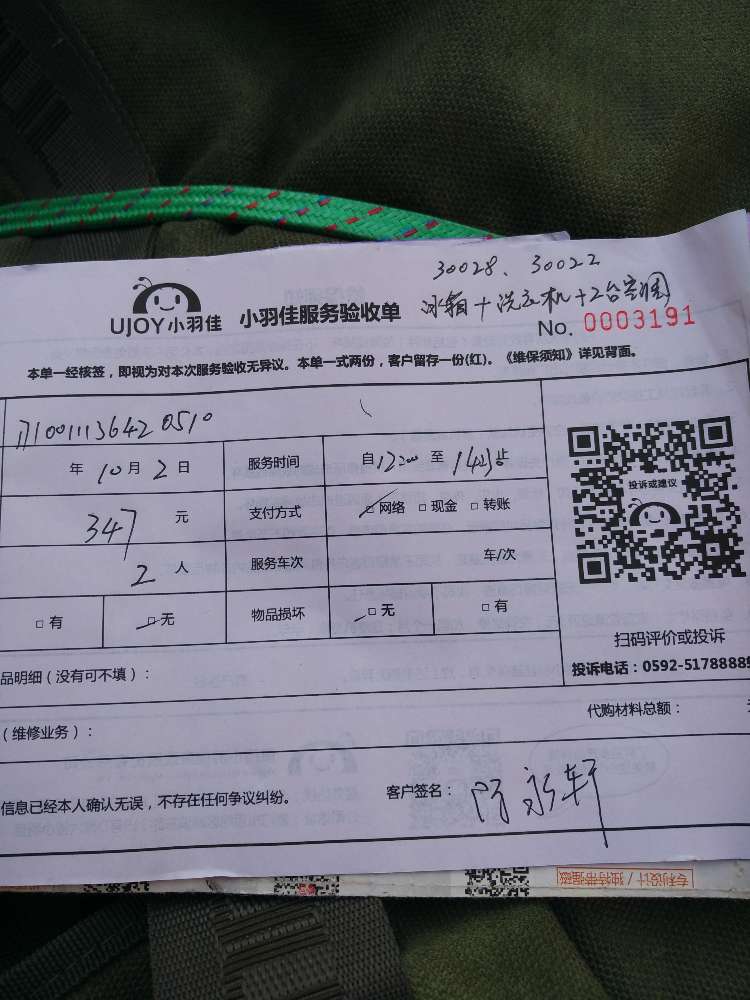 30028、30022
冰箱+洗衣机+2台空调
UJOY小羽佳 小羽佳服务验收单
No. 0003191
本单一经核签，即视为对本次服务验收无异议。本单一式两份，客户留存一份(红)。《维保须知》详见背面。
年 10 月 2 日 服务时间 自12 至
347 元 支付方式 □ 网络 □ 现金 □ 转账
投诉或建议
2 人 服务车次 车/次
□ 有 □ 无 物品损坏 □ 无 □ 有
扫码评价或投诉
品明细（没有可不填）：
投诉电话：0592-5178888
代购材料总额：
（维修业务）：
信息已经本人确认无误，不存在任何争议纠纷。 客户签名：
专利设计/独特带温磁